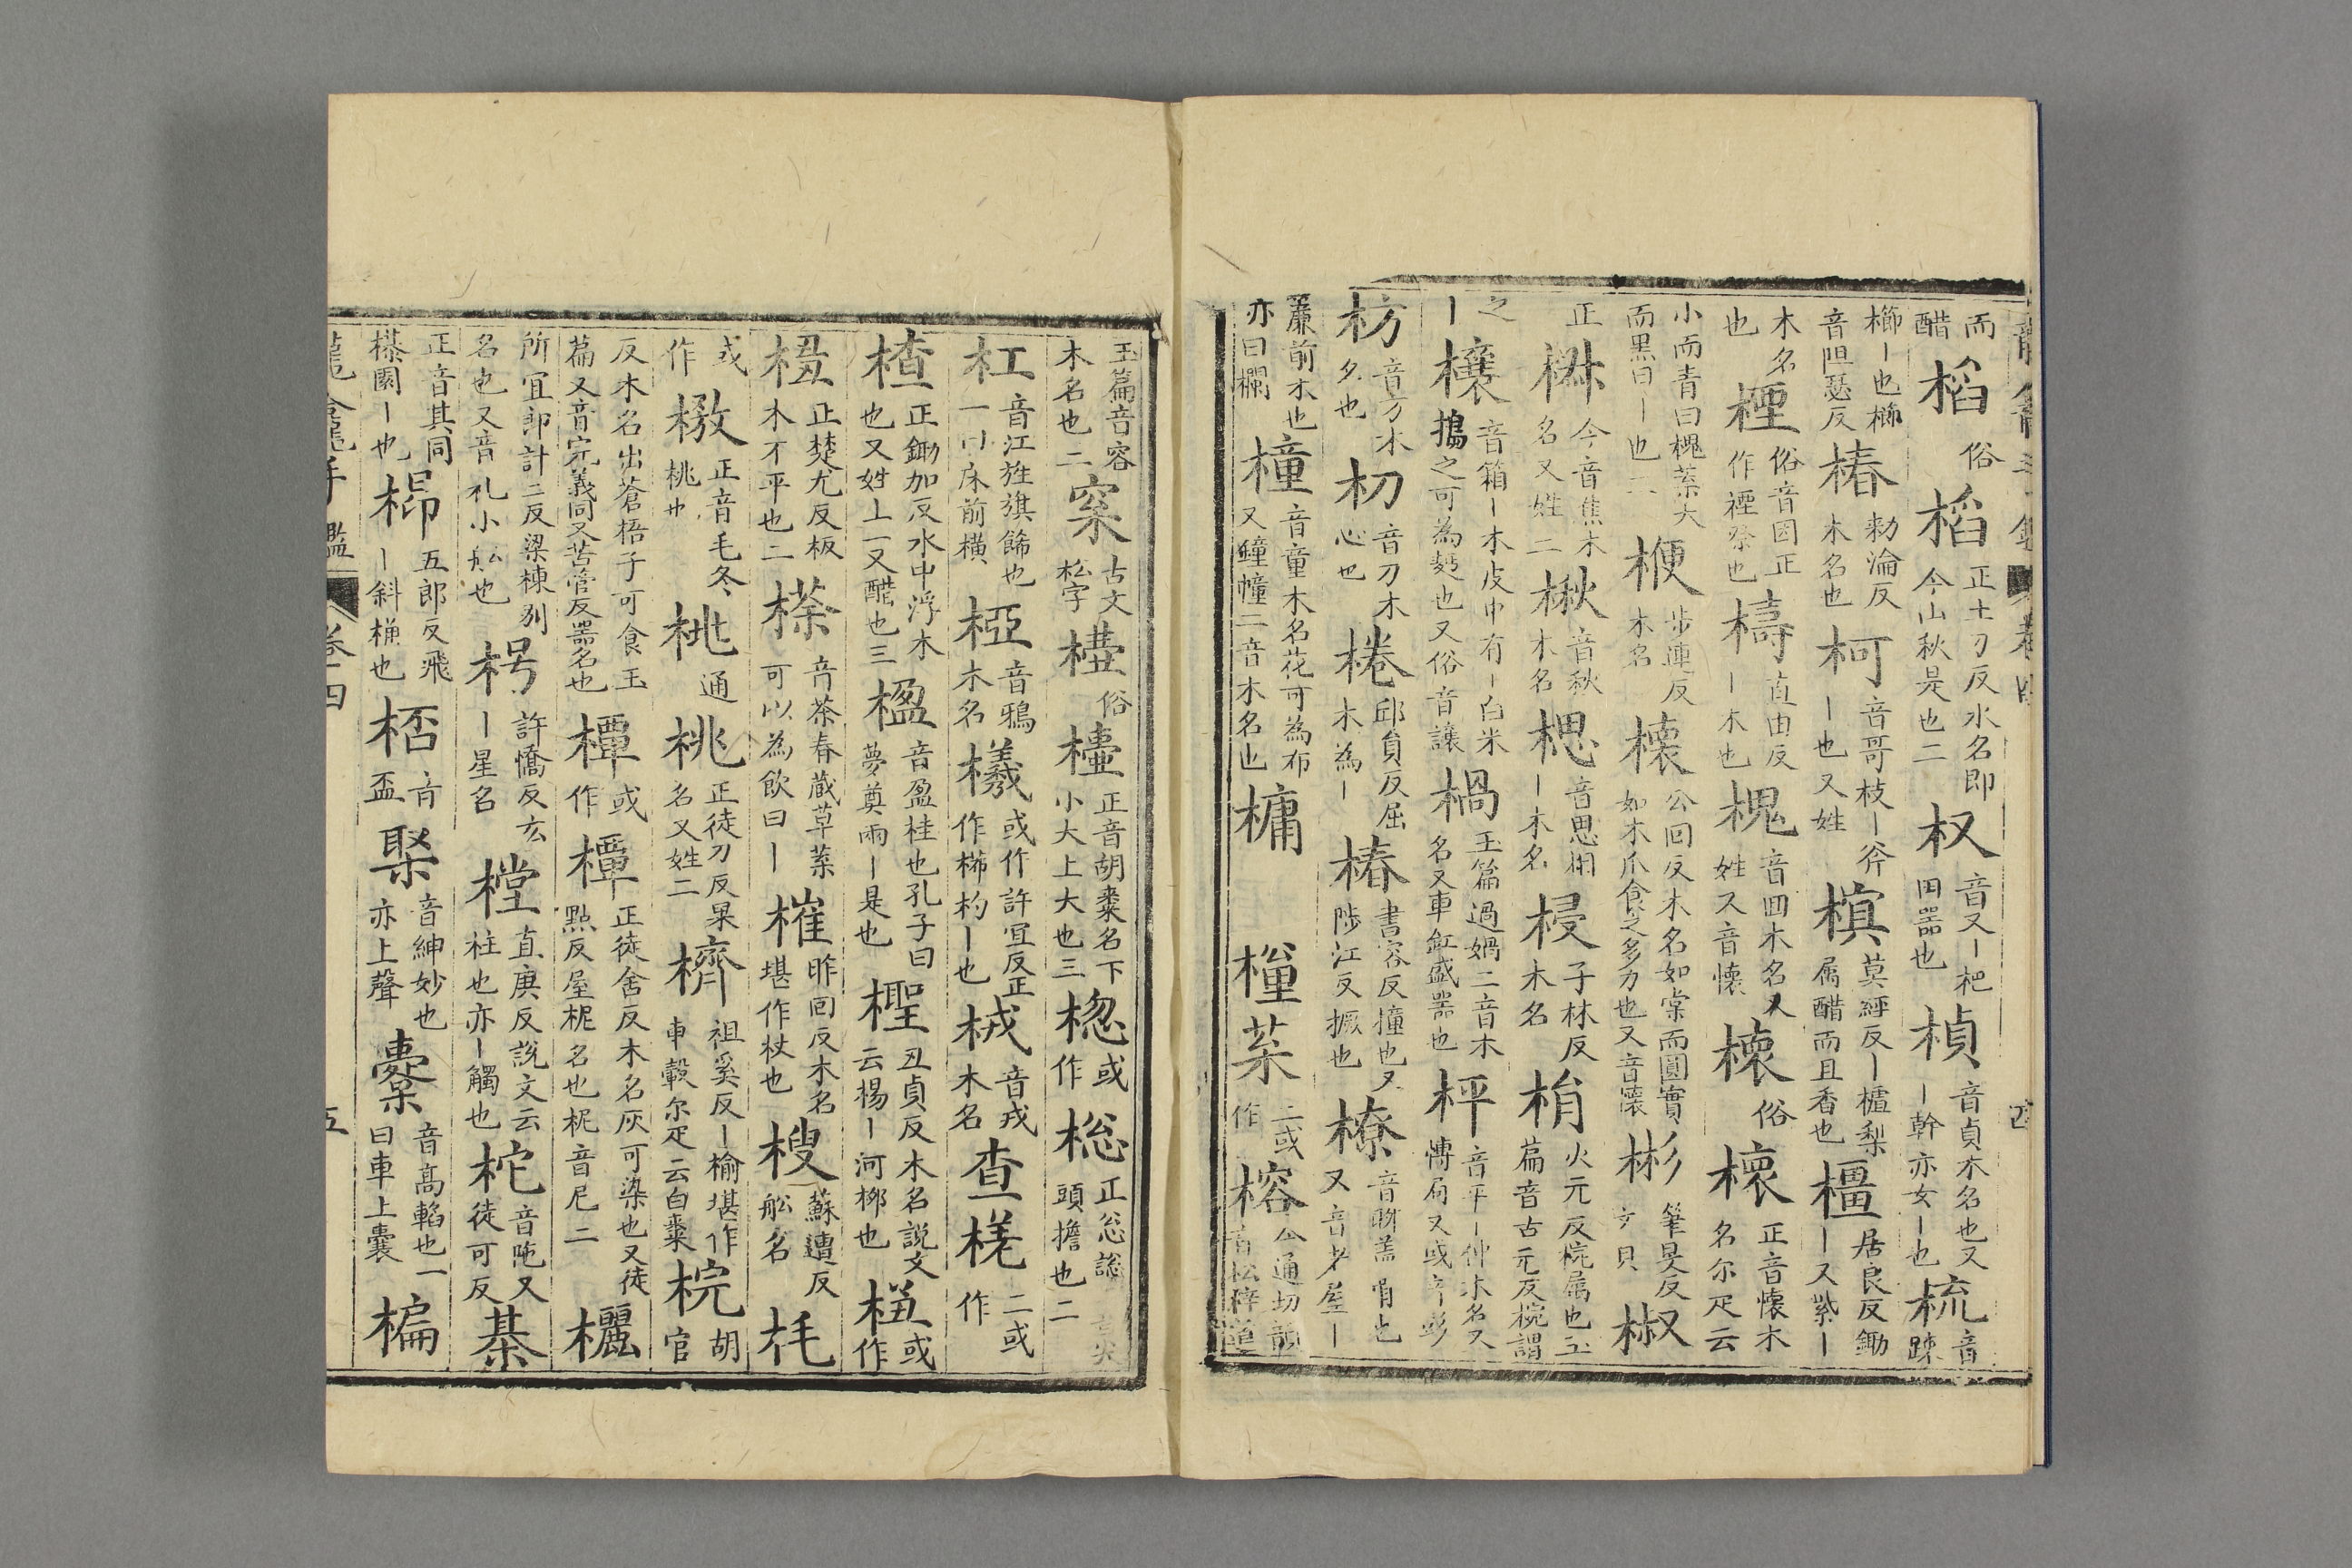 而醋 槄俗 槄正土刀反水名即今山秋是也二 杈音又丨杷田器也 楨音貞木名也又丨幹亦女丨也 梳音踈
櫛丨也櫛音阻瑟反 椿勑淪反木名也 柯音哥枝丨斧丨也又姓 榠莫經反丨樝梨属醋而且香也 橿居良反鋤丨又紫丨
木名也 𣓍俗音因正作禋祭也 檮直由反丨木也 槐音回木名又姓又音懐 櫰俗 櫰正音懐木名尔疋云
小而青曰槐葉大而黒曰丨也二 楩步連反木名 櫰公回反木名如棠而圓實如木瓜食之多力也又音懐 彬筆旻反文貝 椒
正 𣗳今音焦木名又姓二 楸音秋木名 楒音思相丨木名 梫子林反木名 㭈火元反梡属也玉篇音古元反梡謂
之丨 欀音箱丨木皮中有丨白米擣之可為麪也又俗音讓 楇玉篇過媧二音木名又車釭盛器也 枰音平丨仲木名又愽局又或音彭
枋音方木名也 朷音刀木心也 棬邱負反屈木為丨 椿書容反撞也又陟江反橛也 橑音聊盖骨也又音老屋丨
簾前木也亦曰欄 橦音童木名花可為布又鐘幢二音木名也 槦 𣙙 𣒃二或作 榕今通切韻音松梓道
玉篇音容木名也二 窠古文松字 𣘖俗 㯏正音胡棗名下小大上大也三 楤或作 𣓏正忩緫頭擔也二
杠音江旌旗餙也一曰床前横 椏音鴉木名 㰕或作許冝反正作桸杓丨也 栻音戎木名 查 槎二或作
楂正鋤加反水中浮木也又姓丄一又醋也三 楹音盈桂也孔子曰夢奠兩丨是也 檉丑貞反木名說文云楊丨河栁也 杻或作
杻正楚尤反板木不平也二 𣗪音茶春蔵草葉可以為飲曰丨 槯昨回反木名堪作杖也 艘蘓遭反舩名 枆
或作 橔正音毛冬桃也 㧡通 桃正徒刀反果名又姓二 櫅祖奚反丨榆堪作車轂尔疋云白棗 梡胡官
反木名出蒼梧子可食玉篇又音完義同又苦管反器名也 橝或作 橝正徒含反木名灰可染也又徒點反屋柅名也柅音尼二 欐
所冝郎計二反梁棟別名也又音礼小舩也 枵許憍反玄丨星名 樘直庚反説文云柱也亦丨觸也 柁音陁又徒可反 棊
正音其同㯤園丨也 枊五郎反飛丨斜桷也 桮音盃 棸音紳妙也亦上聲 櫜音髙韜也一曰車上囊 楄
龍龕手鑑 卷四 五